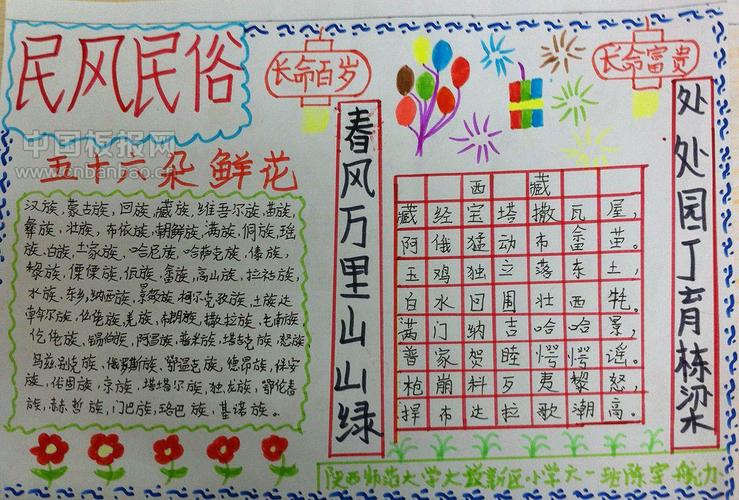 民风民俗
中国板报网
www.cnbanbao.cn
五十一朵鲜花
汉族,蒙古族,回族,藏族,维吾尔族,苗族,
彝族,壮族,布依族,朝鲜族,满族,侗族,瑶
族,白族,土家族,哈尼族,哈萨克族,傣族,
黎族,傈僳族,佤族,畲族,高山族,拉祜族,
水族,东乡,纳西族,景颇族,柯尔克孜族,土族,达
斡尔族,仫佬族,羌族,布朗族,撒拉族,毛南族,
仡佬族,锡伯族,阿昌族,普米族,塔吉克族,怒族,
乌兹别克族,俄罗斯族,鄂温克族,德昂族,保安
族,裕固族,京族,塔塔尔族,独龙族,鄂伦春
族,赫哲族,门巴族,珞巴族,基诺族。
长命百岁
春风万里山山绿
长命富贵
西藏
藏经宝塔撒瓦屋,
阿俄猛动布畲苗。
玉鸡独立落东土,
白水回围壮西牦。
满门纳吉哈哈景,
普家贺睦愕愕谣。
枪崩料歹夷黎怒,
捍布达拉歌潮高。
处处园丁育栋梁
陕西师范大学大校新区小学六一班陈宇航力